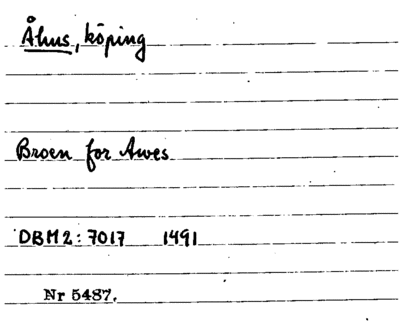 Åhus, köping
Broen for Awes
DBM2: 7017 1491
Nr 5487.